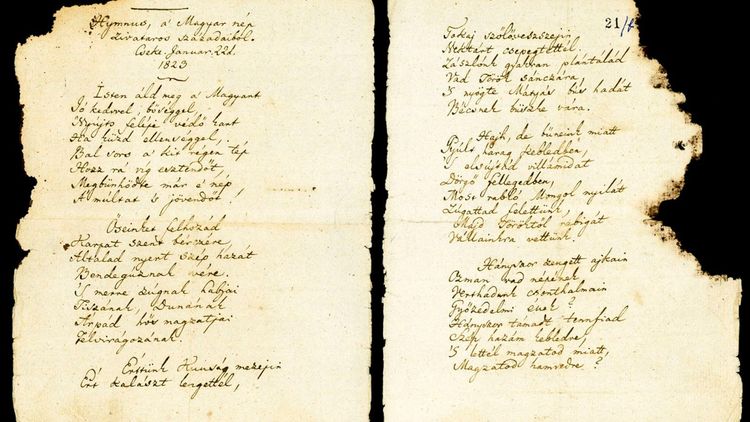 Hymnus, a' Magyar nép
zivataros századaiból.
Cseke, Januar. 22d.
1823
Isten áldd meg a Magyart
Jó kedvvel, bőséggel,
Nyújts feléje védő kart
Ha küzd ellenséggel,
Bal sors a kit régen tép
Hozz rá víg esztendőt,
Megbünhödte már e nép
A múltat 's jövendőt!
Őseinket felhozád
Kárpát szent bérczére,
Általad nyert szép hazát
Bendegúznak vére.
'S merre zúgnak habjai
Tiszának, Dunának
Árpád hős magzatjai
Felvirágozának.
Értünk Kunság mezején
Ért kalászt lengettél,
21/
Tokaj szőlővesszejin
Nektárt csepegtettél.
Zászlónk gyakran plántálád
Vad Török sánczára,
'S nyögte Mátyás bús hadát
Bécsnek büszke vára.
Hajh, de bűneink miatt
Gyúlt harag kebledben,
'S elsújtád villámidat
Dörgő fellegedben,
Most rabló Mongol nyilát
Zúgattad felettünk,
Majd Töröktől rabigát
Vállainkra vettünk.
Hányszor zengett ajkain
Ozman vad népének
Vert hadunk csonthalmain
Győzedelmi ének?
Hányszor támadt tenfiad
Szép hazám kebledre,
'S lettél magzatod miatt,
Magzatod hamvvedre?